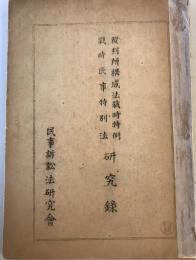 裁判所構成法戦時特例
戦時民事特別法
研究録
民事訴訟法研究會